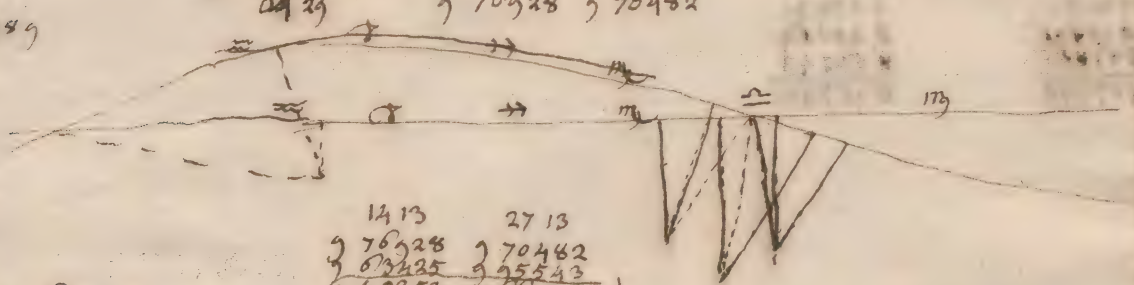 29 9 70928 9 70482
89
♒ ♑ ♐ ♏
♎
♒ ♑ ♐ ♏ ♍
14 13 27 13
9 76928 9 70482
9 63425 9 95543